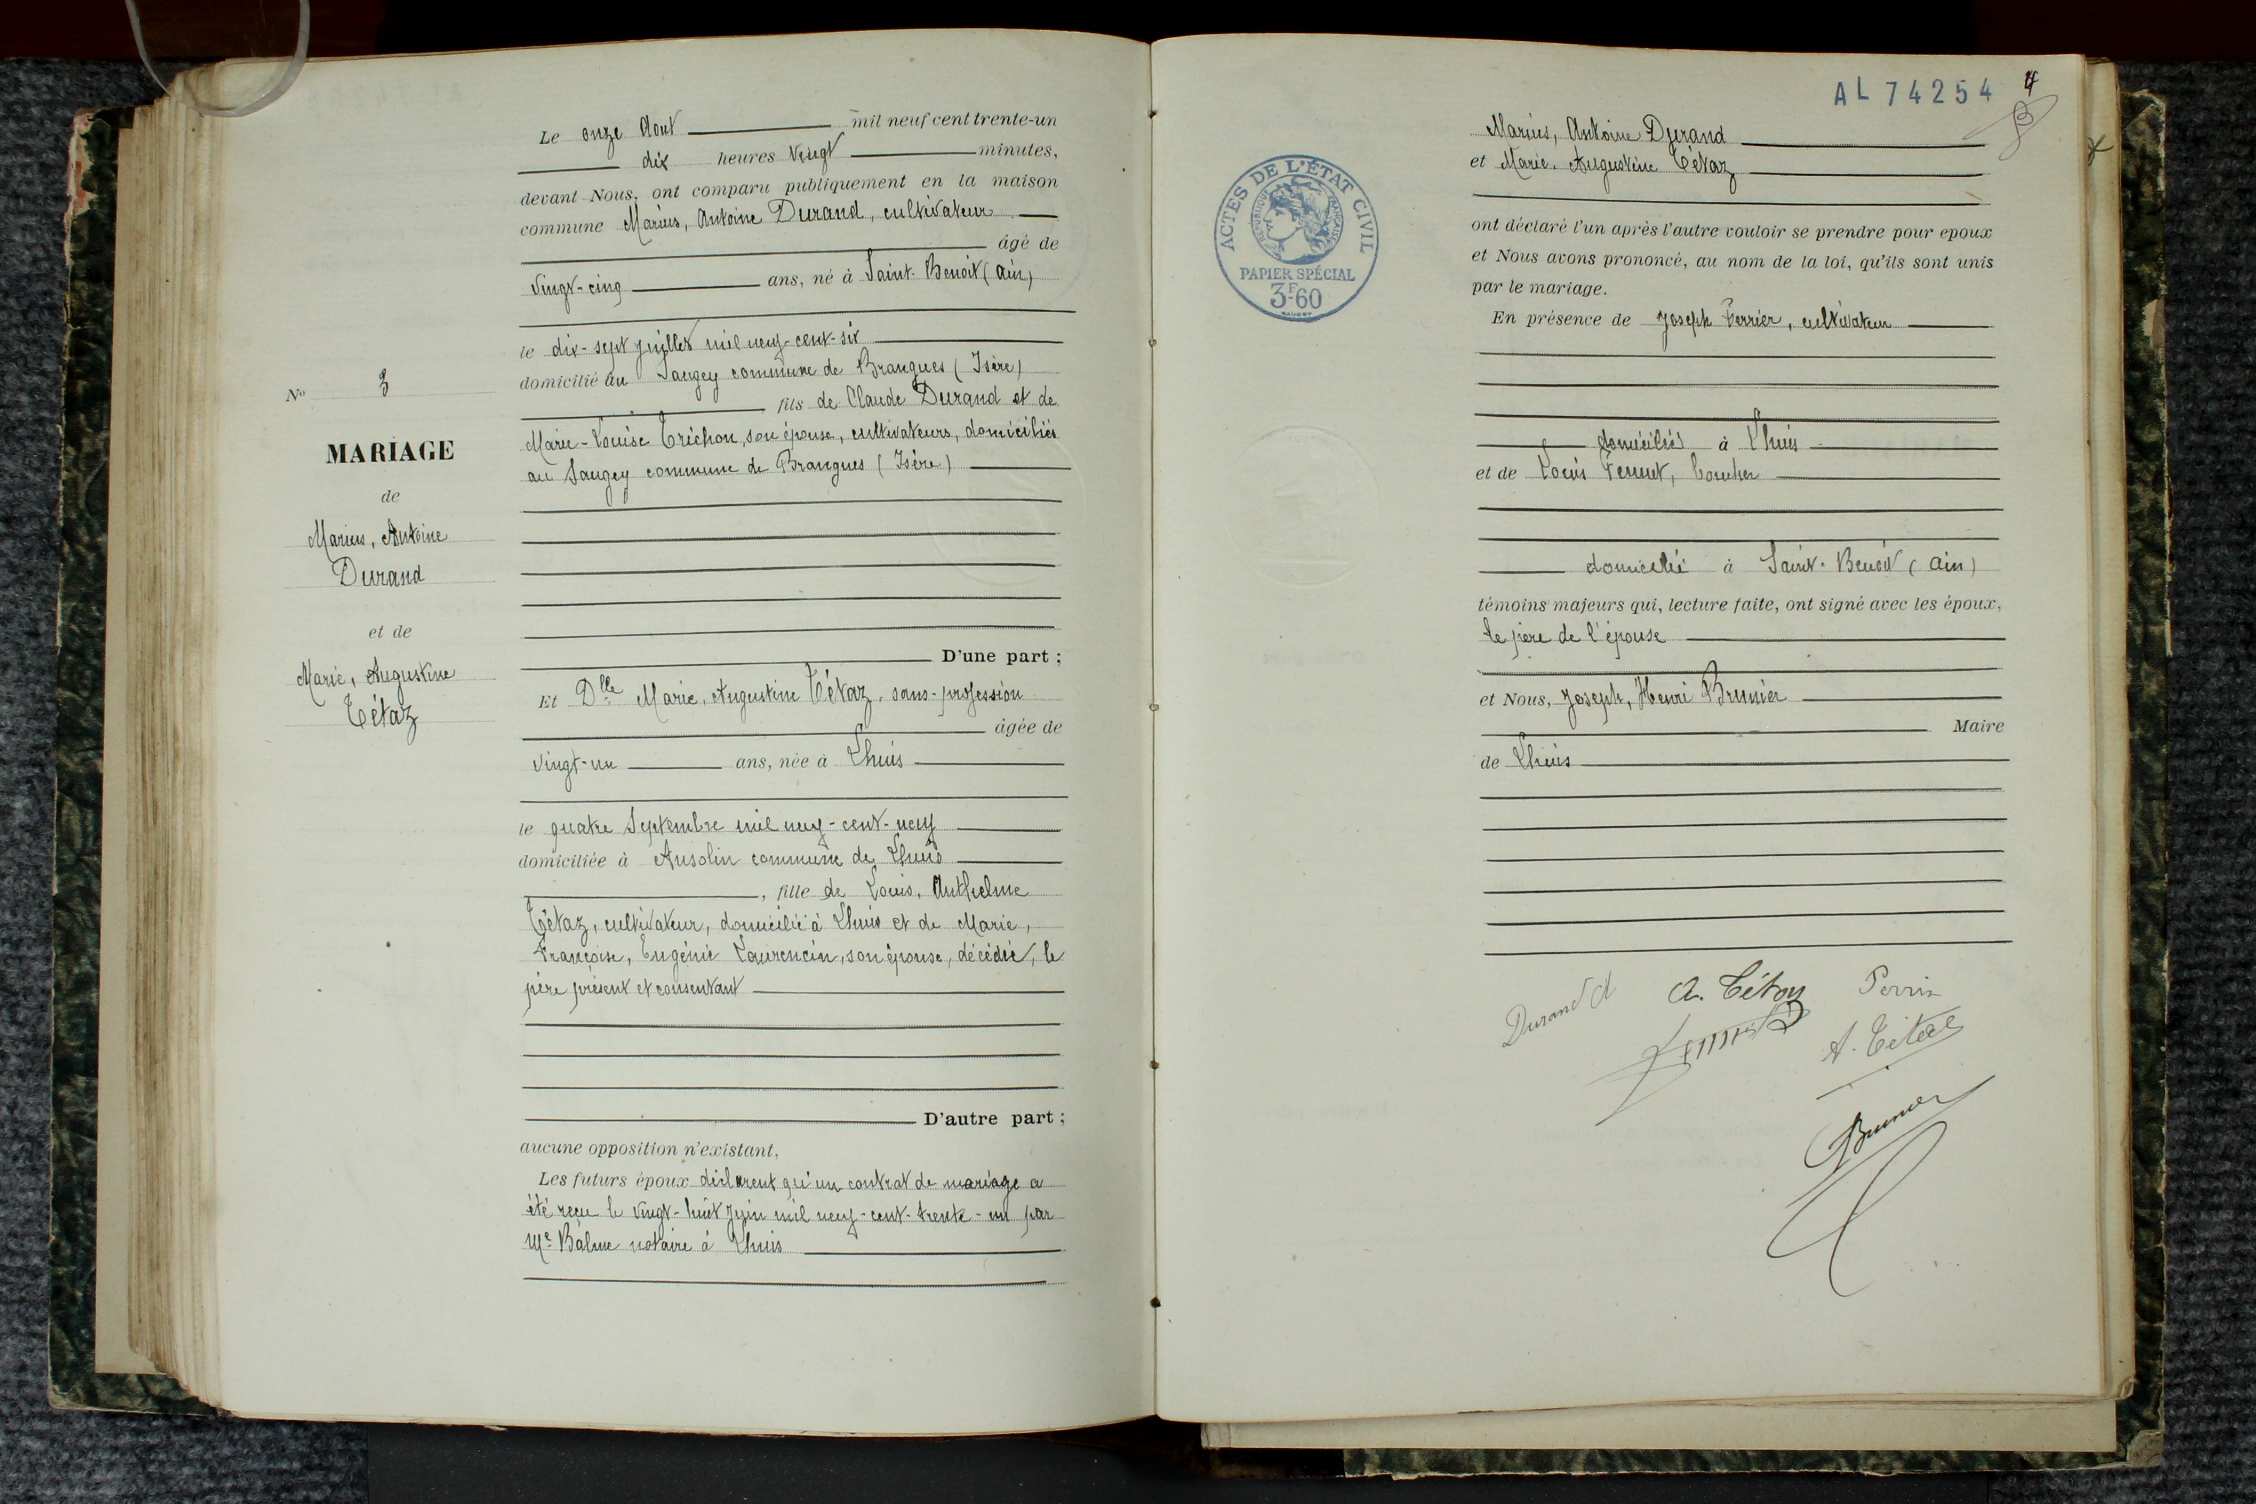 Le onze Aout mil neuf cent trente-un
dix heures vingt minutes,
devant Nous, ont comparu publiquement en la maison
commune Marius, Antoine Durand, cultivateur
âgé de
vingt-cinq ans, né à Saint-Benoît (Ain)
le dix-sept juillet mil neuf-cent-six
domicilié au Saugey commune de Brangues (Isère)
fils de Claude Durand et de
Marie-Louise Tréchon, son épouse, cultivateurs, domiciliés
au Saugey commune de Brangues (Isère)
D'une part ;
Et Dlle Marie, Augustine Tétaz, sans-profession
âgée de
vingt-un ans, née à Lhuis
le quatre Septembre mil neuf-cent-neuf
domiciliée à Ansolin commune de Lhuis
, fille de Louis, Anthelme
Tétaz, cultivateur, domicilié à Lhuis et de Marie,
Françoise, Eugénie Laurencin, son épouse, décédée, le
père présent et consentant
D'autre part ;
aucune opposition n'existant,
Les futurs époux déclarent qu'un contrat de mariage a
été reçu le vingt-huit juin mil neuf-cent-trente-un par
Me Balme notaire à Lhuis
No 3
MARIAGE
de
Marius, Antoine
Durand
et de
Marie, Augustine
Tétaz
AL 74254 4
Marius, Antoine Durand
et Marie, Augustine Tétaz
ont déclaré l'un après l'autre vouloir se prendre pour epoux
et Nous avons prononcé, au nom de la loi, qu'ils sont unis
par le mariage.
En présence de Joseph Perrier, cultivateur
domicilié à Lhuis
et de Louis
domicilié à Saint-Benoît (Ain)
témoins majeurs qui, lecture faite, ont signé avec les époux,
le père de l'épouse
et Nous, Joseph, Henri Brunier
Maire
de Lhuis
ACTES DE L'ÉTAT CIVIL
RÉPUBLIQUE FRANÇAISE
PAPIER SPÉCIAL
3F60
Durand A
A. Tétaz
A. Tétaz
Brunier